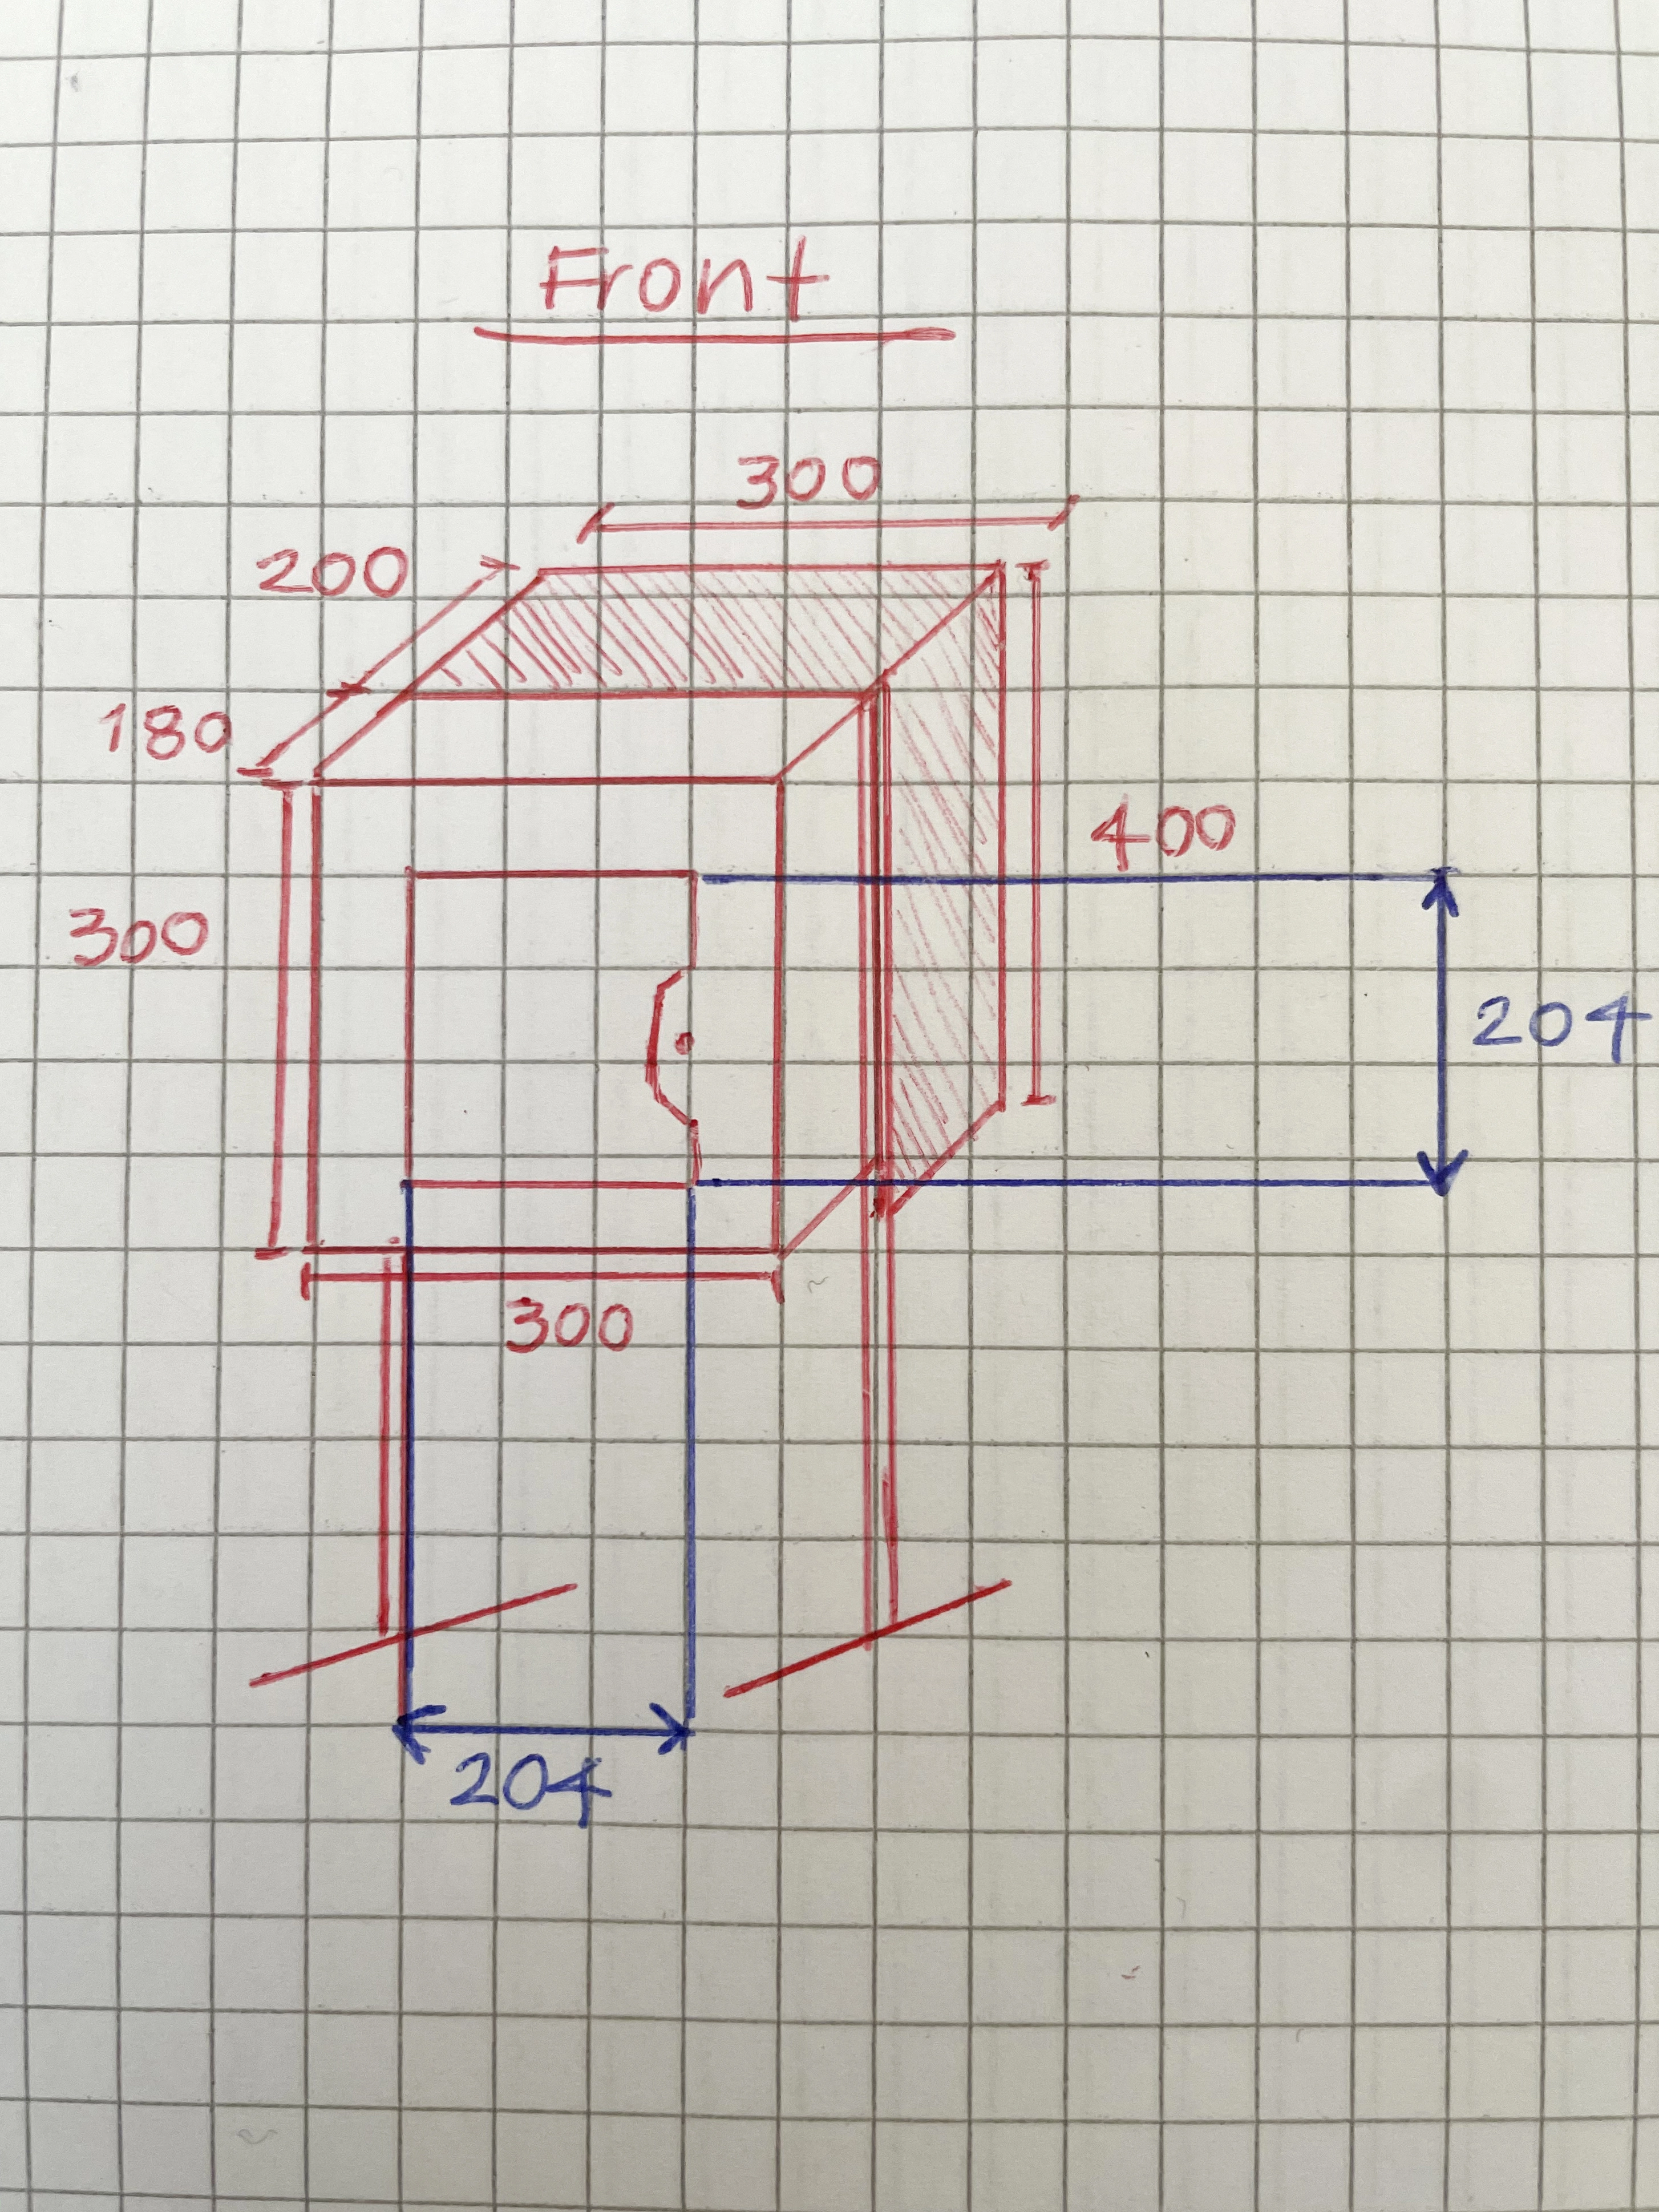 Front
300
200
180
400
300
204
300
204